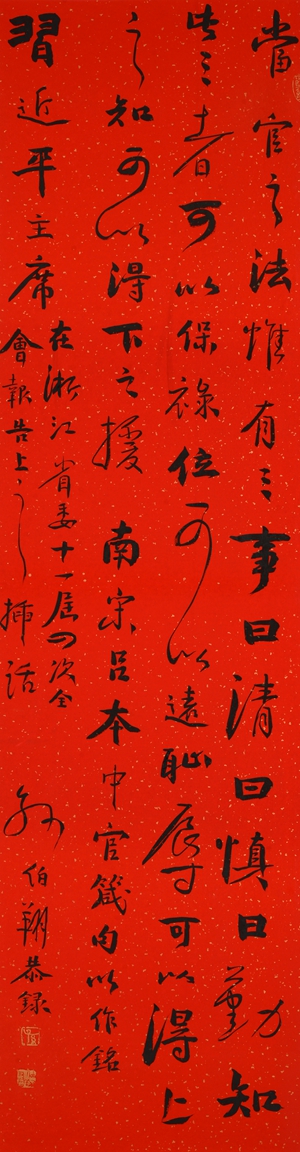 當官之法惟有三事曰清曰慎曰勤知
此三者可以保祿位可以遠恥辱可以得上
之知可以得下之援 南宋呂本中官箴句以作銘
習近平主席
在浙江省委十一屆四次全
會報告上之插話
孫伯翔恭録